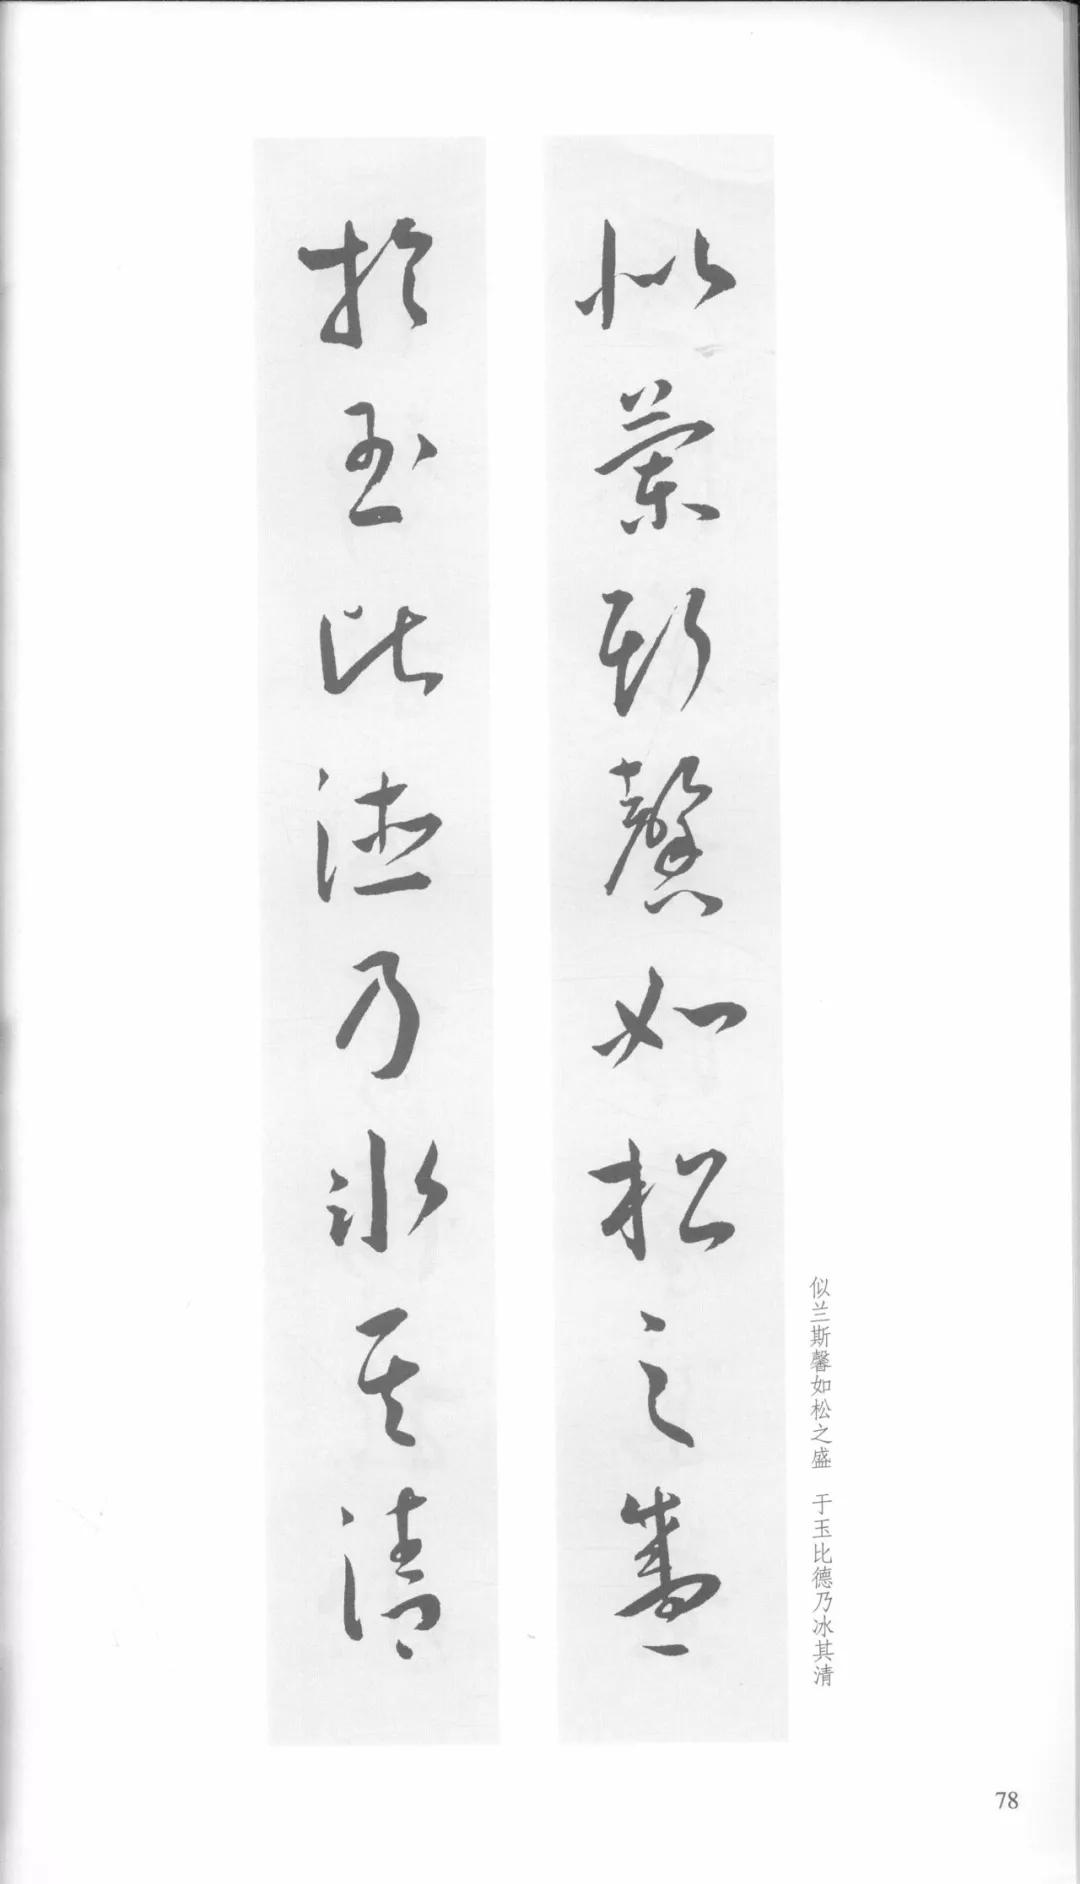 似蘭斯馨如松之盛
於玉比德乃冰其清
似兰斯馨如松之盛 于玉比德乃冰其清
78